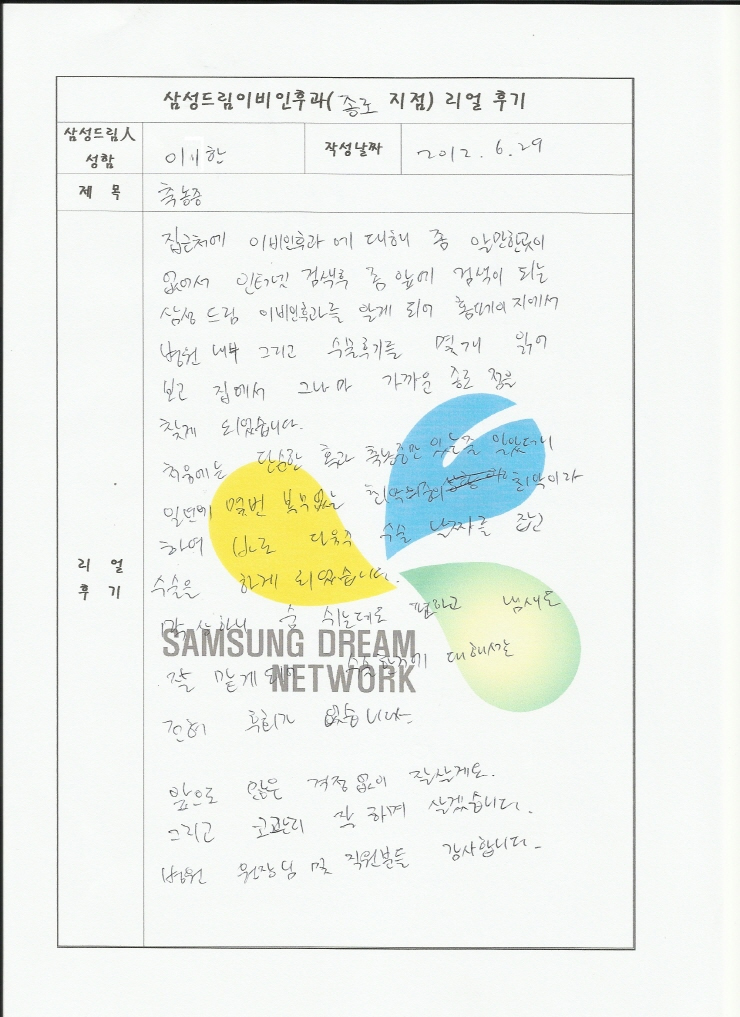 삼성드림이비인후과(종로 지점) 리얼 후기
삼성드림人
성함
이시한
작성날짜
2012. 6. 29
제 목
축농증
리 얼
후 기
집근처에 이비인후과에 대해 좀 알만한곳이
없어서 인터넷 검색후 좀 앞에 검색이 되는
삼성 드림 이비인후과를 알게 되어 홈페이지에서
병원 내부 그리고 수술후기를 몇개 읽어
보고 집에서 그나마 가까운 종로 점을
찾게 되었습니다.
처음에는 단순한 축농증만 있는줄 알았더니
몇번
하여 바로 다음주 수술 날짜를 잡고
수술을 하게 되었습니다.
막상하니 숨 쉬는데도 편하고 냄새도
잘 맡게되어 대해서는
전혀 후회가 없습니다.
앞으로 걱정없이 잘살게요.
그리고 코관리 잘 하며 살겠습니다.
병원 원장님 및 직원분들 감사합니다.
SAMSUNG DREAM
NETWORK